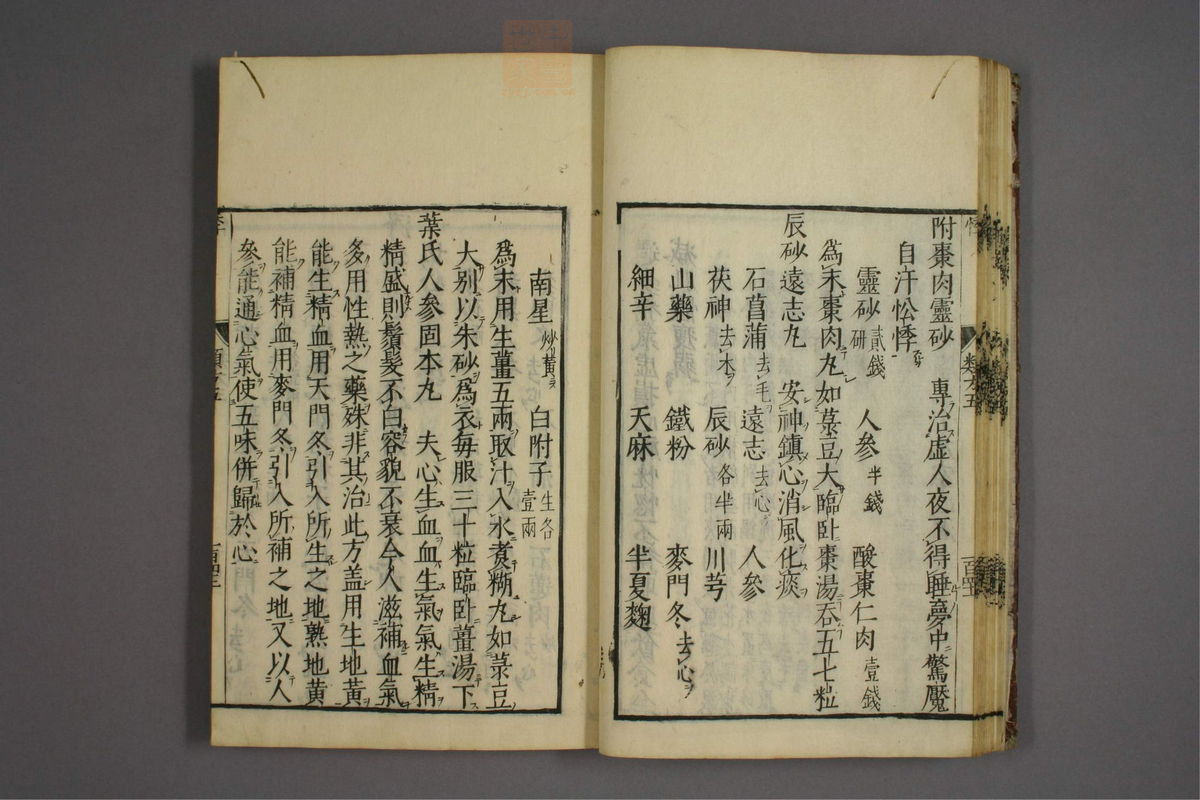 附棗肉靈砂　專治虛人夜不得睡夢中驚魘
自汗忪悸
靈砂貳錢研　人參半錢　酸棗仁肉壹錢
爲末棗肉丸如菉豆大臨臥棗湯吞五七粒
辰砂遠志丸　安神鎮心消風化痰
石菖蒲去毛　遠志去心　人參
茯神去木　辰砂各半兩　川芎
山藥　鐵粉　麥門冬去心
細辛　天麻　半夏麴
南星炒黃　白附子生各壹兩
爲末用生薑五兩取汁入水煑糊丸如菉豆
大別以朱砂爲衣每服三十粒臨臥薑湯下
葉氏人參固本丸　夫心生血血生氣氣生精
精盛則鬚髮不白容貌不衰今人滋補血氣
多用性熱之藥殊非其治此方盖用生地黃
能生精血用天門冬引入所生之地熟地黃
能補精血用麥門冬引入所補之地又以人
參能通心氣使五味併歸於心